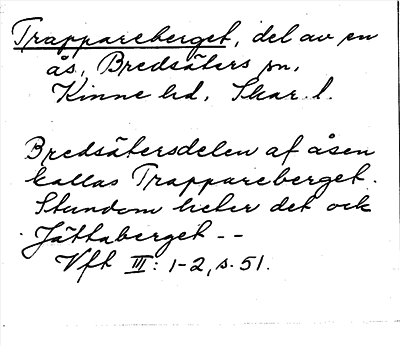 Trappareberget, del av en
ås, Bredsäters sn,
Kinne hd, Skar. l.
Bredsätersdelen af åsen
kallas Trappareberget.
Stundom heter det ock
Jättaberget --
Vft III: 1-2, s. 51.